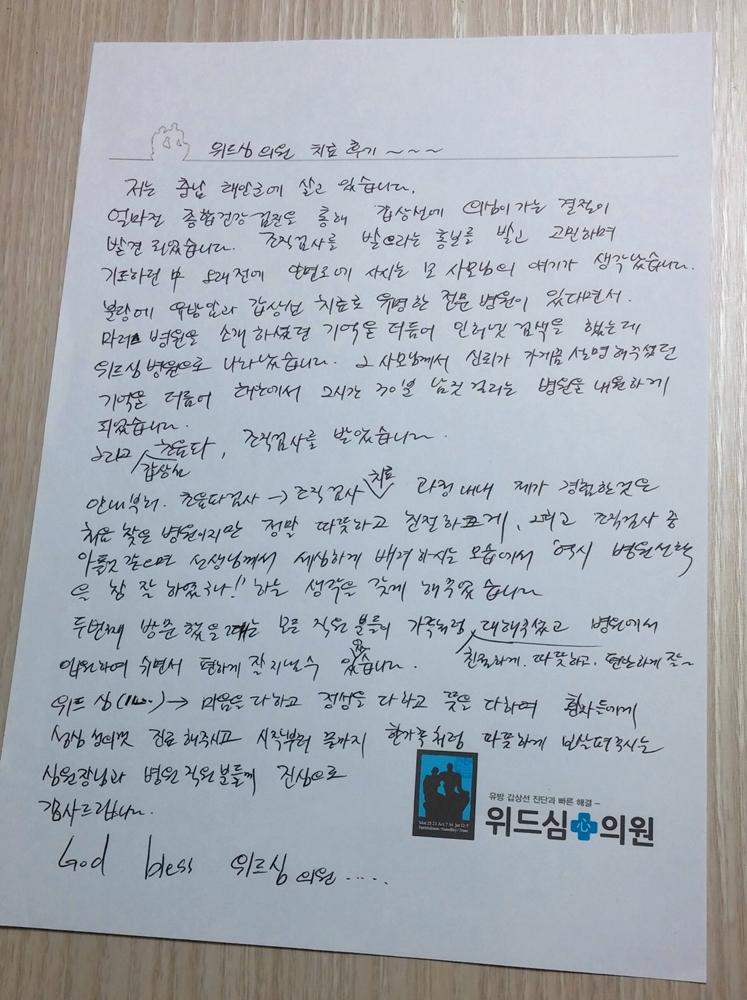 위드심의원 치료후기 ~ ~ ~
저는 충남 태안군에 살고 있습니다.
얼마전 종합건강검진을 통해 갑상선에 의심이가는 결절이
발견되었습니다. 조직검사를 받으라는 통보를 받고 고민하며
기도하던 中 오래전에 안면도에 사시는 모 사모님의 얘기가 생각났습니다.
보령에 유방암과 갑상선 치료로 유명한 전문병원이 있다면서.
병원을 소개하셨던 기억을 더듬어 인터넷 검색을 했는데
위드심병원으로 나타났습니다. 그 사모님께서 신뢰가 가게끔 설명해주셨던
기억을 더듬어 태안에서 2시간 30분 남짓 걸리는 병원을 내원하게
되었습니다.
그리고 갑상선 초음파, 조직검사를 받았습니다.
안내부터. 초음파검사 → 조직검사 치료 과정내내 제가 경험한것은
처음 찾은 병원이지만 정말 따뜻하고 친절하게, 그리고 조직검사 중
아플것 같으면 선생님께서 세심하게 배려하시는 모습에서 "역시 병원선택
을 참 잘 하였구나!" 하는 생각을 갖게 해주었습니다
두번째 방문했을때는 모든 직원분들이 가족처럼 대해주셨고 병원에서
친절하게. 따뜻하고. 편안하게 잘~
입원하여 쉬면서 편하게 잘 지낼수 있었습니다.
위드심(心.) → 마음을 다하고 정성을 다하고 뜻을 다하여 환자들에게
성심성의껏 진료해주시고 시작부터 끝까지 한가족처럼 따뜻하게 보살펴주시는
심원장님과 병원직원분들께 진심으로
감사드립니다.
God bless 위드심의원.....
유방 갑상선 진단과 빠른 해결 –
위드심 心 의원